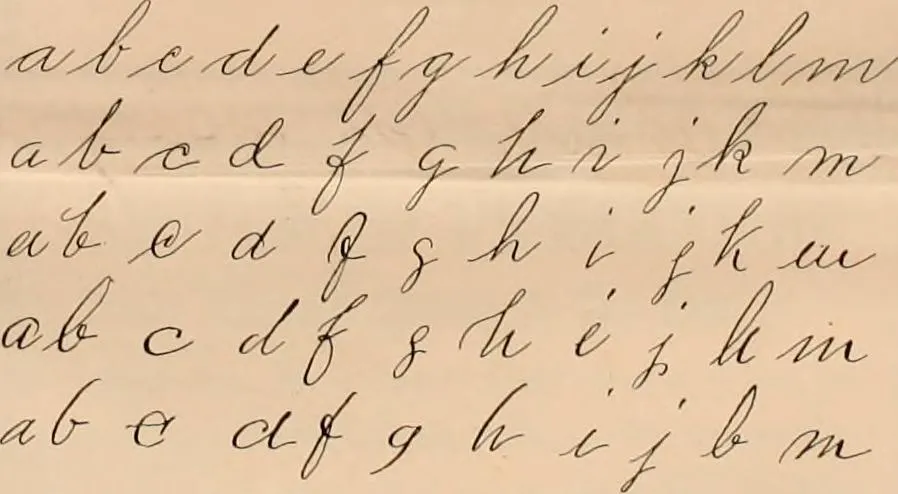 a b c d e f g h i j k l m
a b c d f g h i j k m
a b c d f g h i j k m
a b c d f g h i j k m
a b c d f g h i j k m